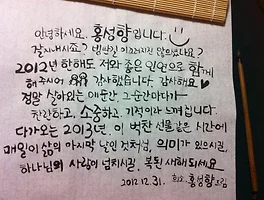 안녕하세요. 홍성향입니다.
잘지내시죠?
2012년 한해도 저와 좋은 인연으로 함께
해주시어 감사했습니다. 감사해요♡
정말 살아있는 매순간, 그순간마다가
찬란하고, 소중하고, 기적이라 느껴집니다.
다가오는 2013년. 이 벅찬 선물같은 시간에
매일이 삶의 마지막 날인 것처럼, 의미가 있으시고,
하나님의 사랑이 넘치시길. 복된 새해 되세요
2012.12.31. 홍성향드림